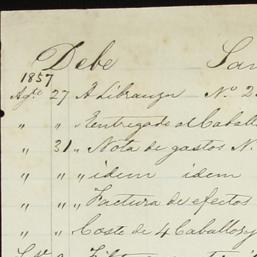 Debe San
1857
Agto 27 A Libranza No 2
" " " Entregado al Caball
" 31 " Nota de gastos N.
" " " idem idem
" " " Factura de efectos
" " " Coste de 4 Caballos y